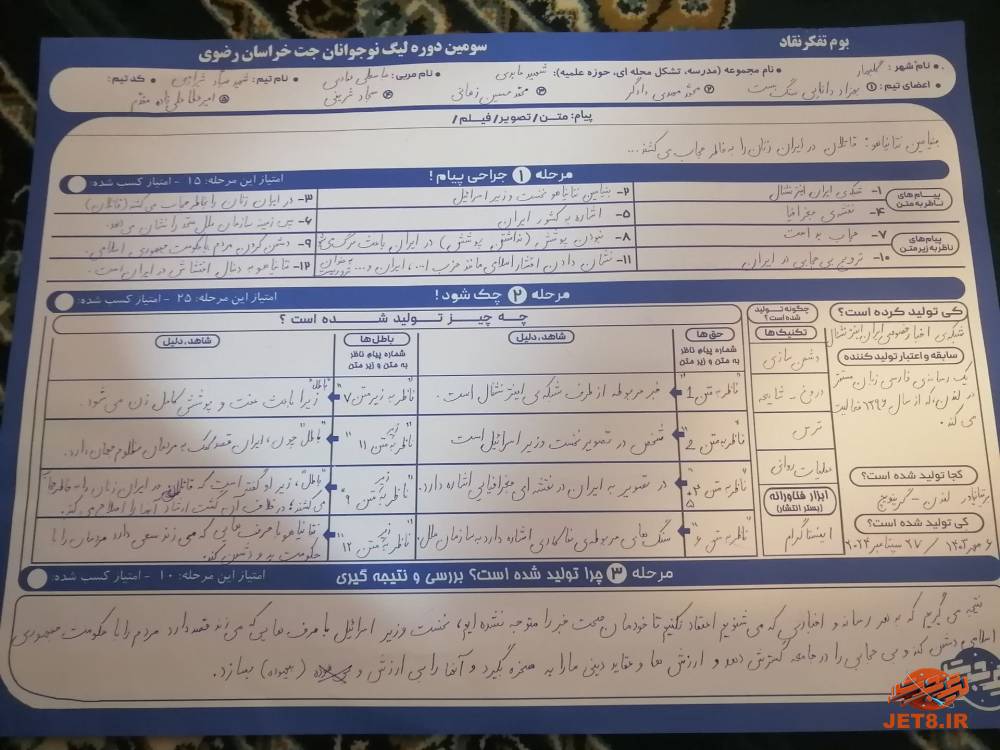 بوم تفکر نقاد
سومین دوره لیگ نوجوانان جت خراسان رضوی
نام شهر: گلبهار
نام مجموعه (مدرسه، تشکل محله ای، حوزه علمیه): شهید عابدی
نام مربی:
نام تیم:
کد تیم:
اعضای تیم: ① بهزاد دانایی سنگ بست
② محمد مهدی دادگر
③ محمد حسین زمانی
④ سجاد شریفی
⑤ امیر علی زاده مقدم
پیام: متن / تصویر / فیلم /
بنیامین نتانیاهو: قاتلان در ایران زنان را به خاطر حجاب می کشند...
مرحله ① جراحی پیام!
امتیاز این مرحله: ۱۵ - امتیاز کسب شده:
پیام های ناظر به متن
۱- شبکه ی ایران اینترنشنال
۲- بنیامین نتانیاهو نخست وزیر اسرائیل
۳- در ایران زنان را بخاطر حجاب می کشند (قاتلان)
۴- نقشه ی جغرافیا
۵- اشاره به کشور ایران
۶- پس زمینه سازمان ملل متحد را نشان می دهد.
پیام های ناظر به زیر متن
۷- حجاب بد است
۸- نبودن پوشش (نداشتن پوشش) در ایران باعث مرگ
۹- دشمن کردن مردم با حکومت جمهوری اسلامی.
۱۰- ترویج بی حجابی در ایران
۱۱- نشان دادن اقشار اسلامی مانند حزب ا...، ایران و... به عنوان تروریست
۱۲- نتانیاهو به دنبال اغتشاش در ایران است.
مرحله ② چک شود!
امتیاز این مرحله: ۲۵ - امتیاز کسب شده:
کی تولید کرده است؟
شبکه ی اخبار خصوصی ایران اینترنشنال
سابقه و اعتبار تولید کننده
یک رسانه ی فارسی زبان مستقر
در لندن، که از سال ۱۳۹۶ فعالیت
می کند.
کجا تولید شده است؟
بریتانیا در لندن - گرینویچ
کی تولید شده است؟
۶ مهر ۱۴۰۳ / ۲۷ سپتامبر ۲۰۲۴
چگونه تولید شده است؟
تکنیک ها
دشمن سازی
دروغ - شایعه
ترس
عملیات روانی
ابزار فناورانه (بستر انتشار)
اینستاگرام
چه چیز تولید شده است؟
حق ها
شماره پیام ناظر به متن و زیر متن
شاهد، دلیل
باطل ها
شماره پیام ناظر به متن و زیر متن
شاهد، دلیل
"ناظر به متن 1"
خبر مربوطه از طرف شبکه ی اینترنشنال است.
"ناظر به زیر متن ۷"
"باطل" زیرا باعث عفت و پوشش کامل زن می شود.
"ناظر به متن 2"
شخص در تصویر نخست وزیر اسرائیل است
"ناظر به زیر متن ۱۱"
"باطل" چون، ایران قصد کمک به مردمان مظلوم جهان دارد.
"ناظر به متن ۴، ۵"
در تصویر به ایران در نقشه ای جغرافیایی اشاره دارد.
"ناظر به زیر متن ۹"
"باطل"، زیر او گفته است که قاتلان در ایران زنان را به خاطر حجاب
می کشند؛
"ناظر به متن ۶"
سنگ های مربوطه ی نمادی اشاره دارد به سازمان ملل.
"ناظر به زیر متن ۱۲"
نتانیاهو با حرف هایی که می زند سعی دارد مردمان را با
حکومت بد و دشمن کند.
مرحله ③ چرا تولید شده است؟ بررسی و نتیجه گیری
امتیاز این مرحله: ۱۰ - امتیاز کسب شده:
نتیجه می گیریم که به هر رسانه و اخباری که می شنویم اعتقاد نکنیم تا خودمان صحت خبر را متوجه نشده ایم، نخست وزیر اسرائیل با حرف هایی که می زند قصد دارد مردم را با حکومت جمهوری
اسلامی دشمن کند و بی حجابی را در جامعه گسترش دهد و ارزش ها و عقاید دینی ما را به سخره بگیرد و آنها را بی ارزش و (بیهوده) بسازد.
JET8.IR